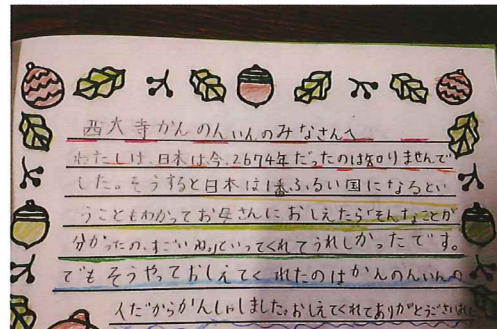 西大寺かんのんいんのみなさんへ
わたしは、日本は今、2674年だったのは知りませんで
した。そうすると日本は1番ふるい国になるとい
うこともわかってお母さんにおしえたらそんなことが
分かったの、すごいねっていってくれてうれしかったです。
でもそうやっておしえてくれたのはかんのんいんの
人だからかんしゃしました。おしえてくれてありがとうございました